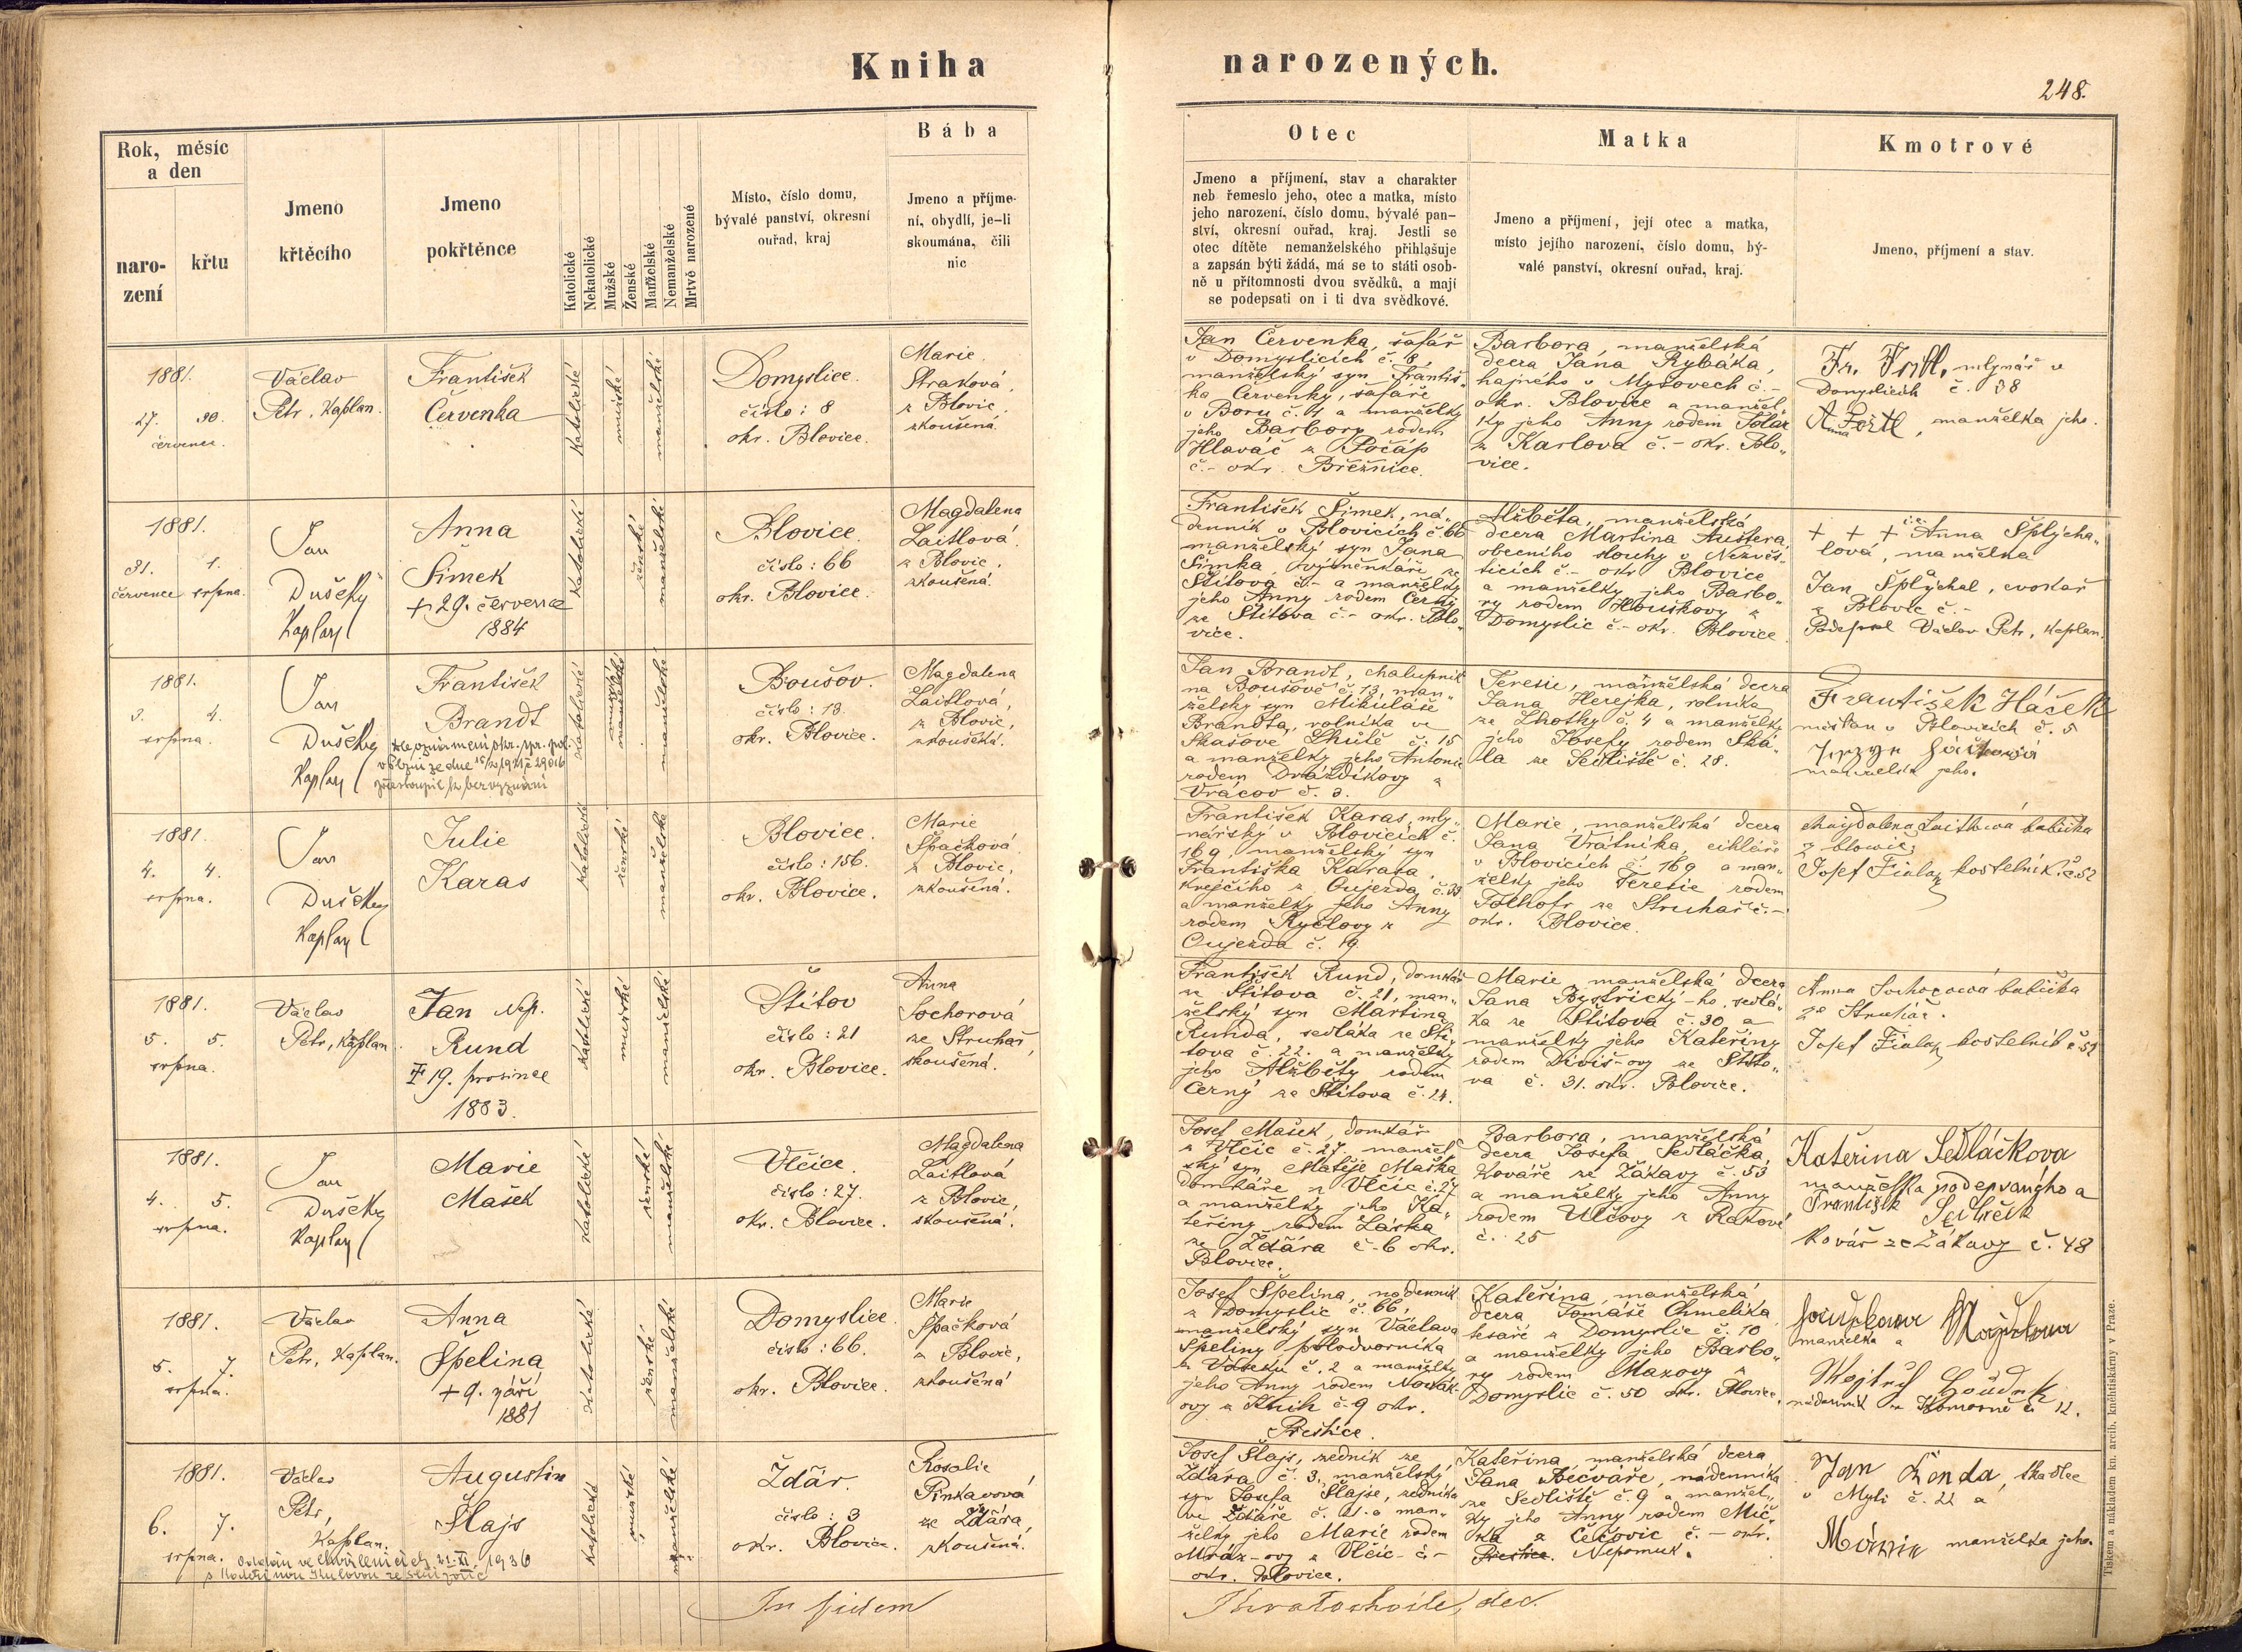 Kniha narozených.
248.
Rok, měsíc
a den
naro-
zení
křtu
Jmeno
křtěcího
Jmeno
pokřtěnce
Katolické
Nekatolické
Mužské
Ženské
Manželské
Nemanželské
Mrtvě narozené
Místo, číslo domu,
bývalé panství, okresní
ouřad, kraj
Bába
Jmeno a příjme-
ní, obydlí, je-li
skoumána, čili
nic
Otec
Jmeno a příjmení, stav a charakter
neb řemeslo jeho, otec a matka, místo
jeho narození, číslo domu, bývalé pan-
ství, okresní ouřad, kraj. Jestli se
otec dítěte nemanželského přihlašuje
a zapsán býti žádá, má se to státi osob-
ně u přítomnosti dvou svědků, a mají
se podepsati on i ti dva svědkové.
Matka
Jmeno a příjmení, její otec a matka,
místo jejího narození, číslo domu, bý-
valé panství, okresní ouřad, kraj.
Kmotrové
Jmeno, příjmení a stav.
1881.
27. 30.
července.
Václav
Petr, Kaplan.
František
Červenka
Katolické
mužské
manželské
Domyslice.
číslo: 8
okr. Blovice.
Marie
Straková
z Blovic
zkoušená.
Jan Červenka, šafář
v Domyslicích č. 8,
manželský syn Františ-
ka Červenky, šafáře
v Boru č. 4 a manželky
jeho Barbory rodem
Hlaváč z Počáp
č.- okr. Březnice.
Barbora, manželská
dcera Jana Rybáka,
hajného v Myťovech č.-
okr. Blovice a manžel-
ky jeho Anny rodem Tolar
z Karlova č.- okr. Blo-
vice.
mlynář v
Domyslicích č. 38
manželka jeho.
1881.
31. 1.
července srpna.
Jan
Dušek
Kaplan
Anna
Šimek
+ 29. července
1884
Katolické
ženské
manželské
Blovice.
číslo: 66
okr. Blovice.
Magdalena
Laitlová
z Blovic,
zkoušená.
František Šimek, ná-
denník v Blovicích č. 66
manželský syn Jana
Šimka, výměnkáře ze
Štítova č.- a manželky
jeho Anny rodem Černý
ze Štítova č.- okr. Blo-
vice.
Alžběta, manželská
dcera Martina Austera,
obecního slouhy v Nezvěs-
ticích č.- okr. Blovice
a manželky jeho Barbo-
ry rodem Houškovy z
Domyslic č.- okr. Blovice.
+ + + Anna Šplýcha-
lová, manželka
Jan Šplýchal, cvokař
z Blovic č.-
Podepsal Václav Petr, Kaplan.
1881.
3. 4.
srpna.
Jan
Dušek
Kaplan
František
Brandt
Katolické
mužské
manželské
Boušov.
číslo: 13.
okr. Blovice.
Magdalena
Laitlová,
z Blovic,
zkoušená.
Jan Brandt, chalupník
na Boušově č. 13, man-
želský syn Mikuláše
Brandta, rolníka ve
Skašově Lhůtě č. 15
a manželky jeho Antonie
rodem Draždíkovy z
Vracov č. 3.
Teresie, manželská dcera
Jana Herejka, rolníka
ze Lhotky č. 4 a manželky
jeho Josefy rodem Ská-
la ze Sedliště č. 28.
František Háček
měšťan v Blovicích č. 5
manželka jeho.
1881.
4. 4.
srpna.
Jan
Dušek
Kaplan
Julie
Karas
Katolické
ženské
manželské
Blovice.
číslo: 156.
okr. Blovice.
Marie
Špačková
z Blovic,
zkoušená.
František Karas, mly-
nářský v Blovicích č.
169, manželský syn
Františka Karasa,
krejčího z Oujezda č. 39
a manželky jeho Anny
rodem Ryčlovy z
Oujezda č. 19.
Marie, manželská dcera
Jana Vrátníka, cihláře
v Blovicích č. 169 a man-
želky jeho Teresie rodem
Folkofr ze Struhař č.-
okr. Blovice.
Magdalena Laitlová babička
z Blovic;
Josef Fiala, kostelník č. 52
1881.
5. 5.
srpna.
Václav
Petr, Kaplan
Jan Nep.
Rund
+ 19. prosince
1883.
Katolické
mužské
manželské
Štítov
číslo: 21
okr. Blovice.
Anna
Sochorová
ze Struhař,
zkoušená.
František Rund, domkář
ze Štítova č. 21, man-
želský syn Martina
Runda, sedláka ze Ští-
tova č. 22. a manželky
jeho Alžběty rodem
Černý ze Štítova č. 24.
Marie, manželská dcera
Jana Bystrický-ho, sedlá-
ka ze Štítova č. 30 a
manželky jeho Kateřiny
rodem Diviš-ovy ze Štíto-
va č. 31. okr. Blovice.
Anna Sochorová babička
ze Struhař.
Josef Fiala, kostelník č 52
1881.
4. 5.
srpna.
Jan
Dušek
Kaplan
Marie
Mašek
Katolické
ženské
manželské
Vlčice.
číslo: 27.
okr. Blovice.
Magdalena
Laitlová
z Blovic,
zkoušená.
Josef Mašek, domkář
z Vlčic č. 27, manžel-
ský syn Matěje Maška
domkáře z Vlčic č. 27
a manželky jeho Ka-
teřiny rodem Láska
ze Ždára č. 6 okr.
Blovice.
Barbora, manželská
dcera Josefa Sedláčka,
kováře ze Žákavy č. 53
a manželky jeho Anny
rodem Ulčovy z Rakové
č. 25
Kateřina Sedláčkova
manželka podepsaného a
František Sedláček
Kovář ze Žákavy č. 48
1881.
5. 7.
srpna.
Václav
Petr, Kaplan.
Anna
Špelina
+ 9. září
1881
Katolické
ženské
manželské
Domyslice.
číslo: 66.
okr. Blovice.
Marie
Špačková
z Blovic,
zkoušená
Josef Špelina, nádenník
z Domyslic č. 66,
manželský syn Václava
Špeliny polodvorníka
č. 2 a manželky
jeho Anny rodem Novák-
ovy z Knih č. 9 okr.
Přeštice.
Kateřina, manželská
dcera Tomáše Chmelíka,
tesaře z Domyslic č. 10
a manželky jeho Barbo-
ry rodem Maxovy z
Domyslic č. 50 okr. Blovice.
manželka a
nádenník z Komorně č. 12.
1881.
6. 7.
srpna.
Václav
Petr,
Kaplan.
Augustin
Šlajs
Oddán ve Chválenicích 21. XI. 1936
Katolické
mužské
manželské
Ždár.
číslo: 3
okr. Blovice.
Rosalie
Pinkavová
ze Ždára,
zkoušená.
Josef Šlajs, zedník ze
Ždára č. 3, manželský
syn Josefa Šlajse, zedníka
ve Ždáře č. 21. a man-
želky jeho Marie rodem
Mráz-ovy z Vlčic č.-
okr. Blovice.
Kateřina, manželská dcera
Jana Bečváře, nádenníka
ze Sedliště č. 9 a manžel-
ky jeho Anny rodem Mič-
ka z Čečovic č.- okr.
Přeštice. Nepomuk.
Jan Lenda, tkadlec
v Mýti č. 22 a
manželka jeho.
In fidem
Tiskem a nákladem kn. arcib. kněhtiskárny v Praze.